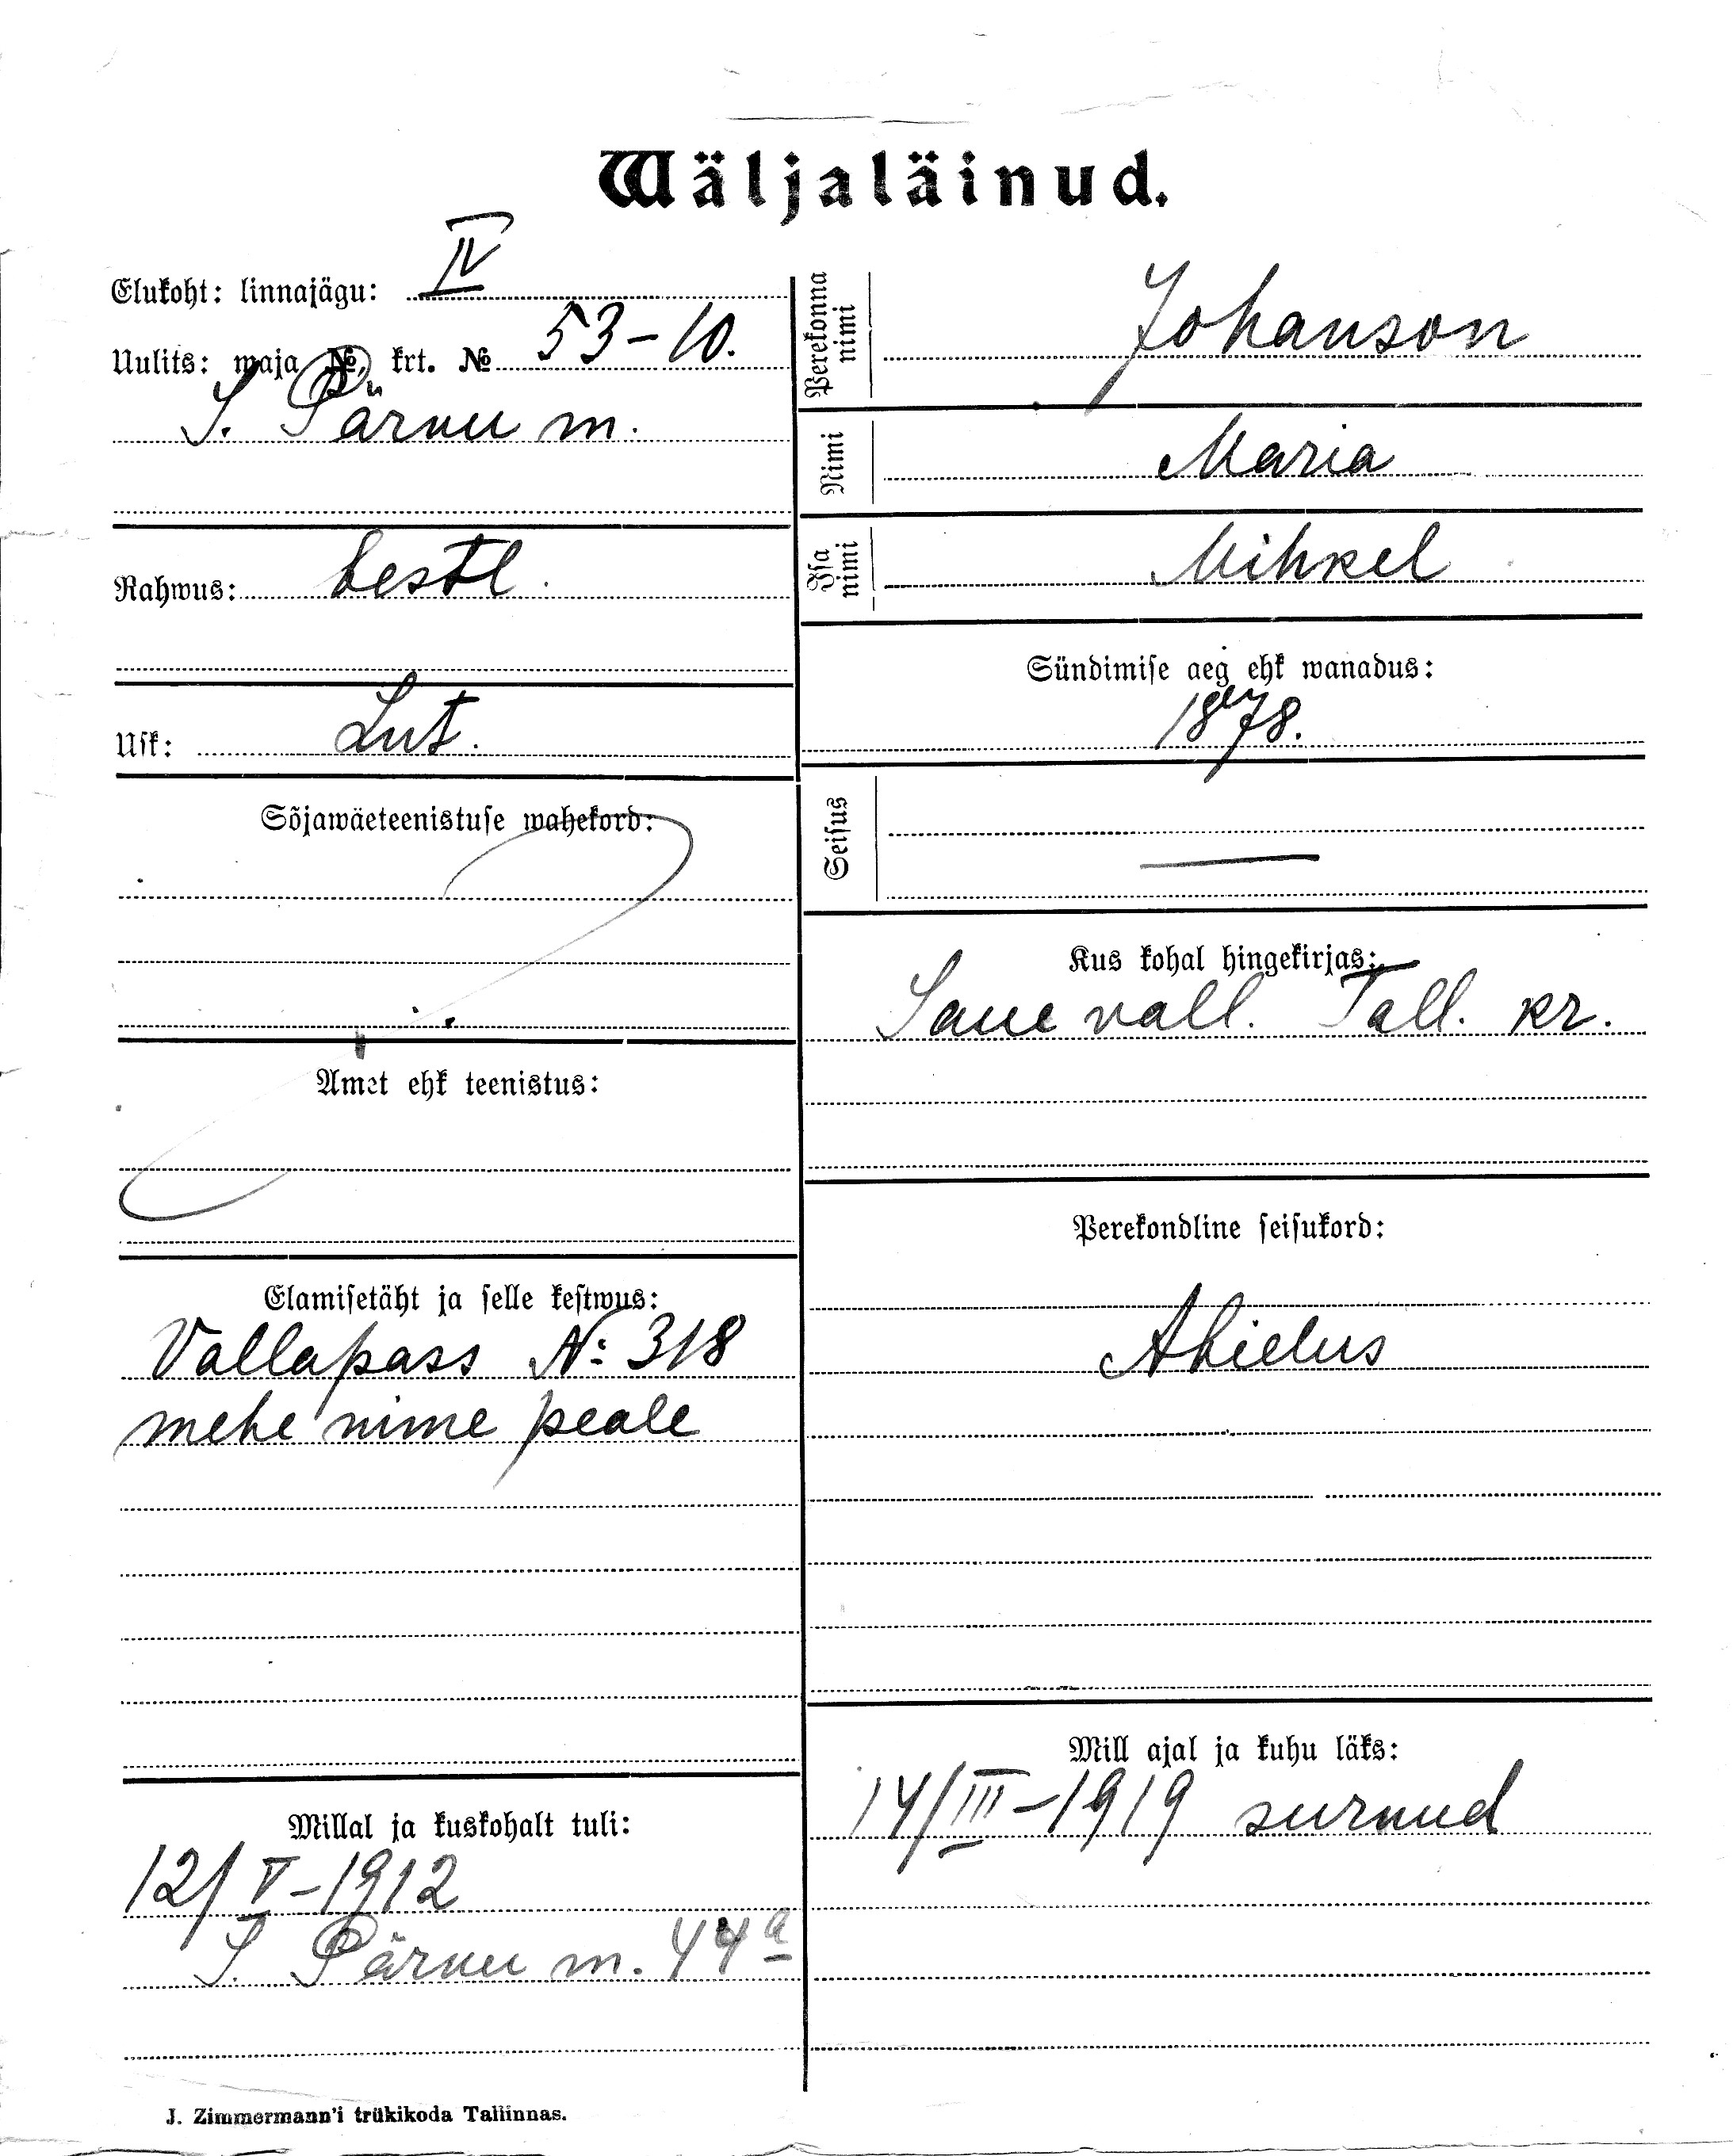 Wäljaläinud.
Elukoht: linnajägu: IV
Uulits: maja № krt. № 53-10.
S. Pärnu m.
Rahwus: eestl.
Usk: Lut.
Sõjawäeteenistuse wahekord:
Amet ehk teenistus:
Elamisetäht ja selle kestwus:
Vallapass №: 318
mehe nime peale
Millal ja kuskohalt tuli:
12/V-1912
S. Pärnu m. 44a
Perekonna nimi Johanson
Nimi Maria
Isa nimi Mihkel
Sündimise aeg ehk wanadus:
1878.
Seisus —
Kus kohal hingekirjas:
Saue vall. Tall. kr.
Perekondline seisukord:
Abielus
Mill ajal ja kuhu läks:
14/III-1919 surnud
J. Zimmermann'i trükikoda Tallinnas.